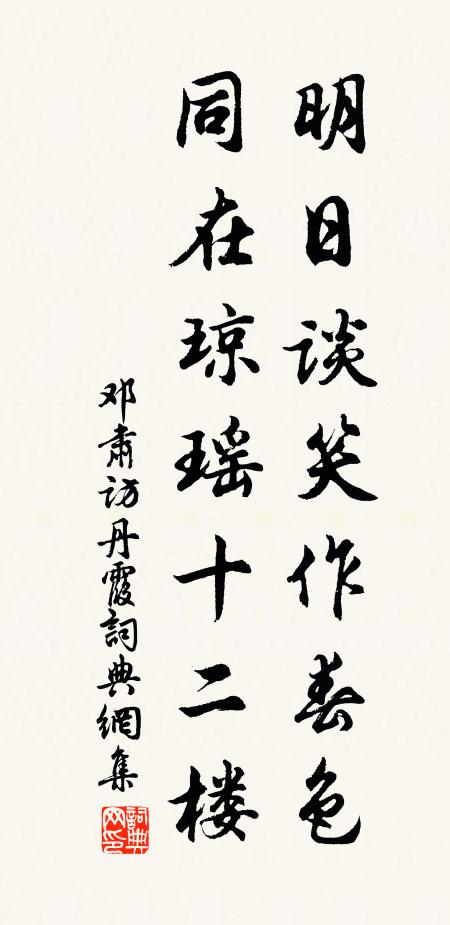 明日谈笑作春色
同在琼瑶十二楼
邓肃访丹霞詞典網集
詞典网印